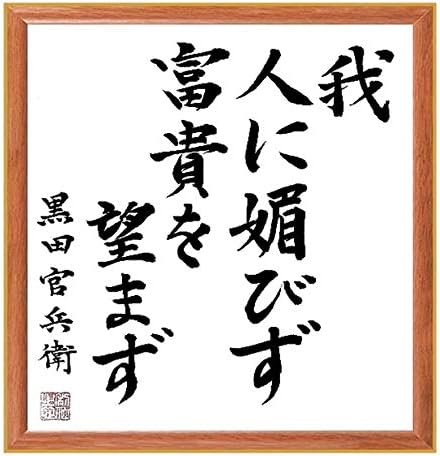 我
人に媚びず
富貴を
望まず
黒田官兵衛